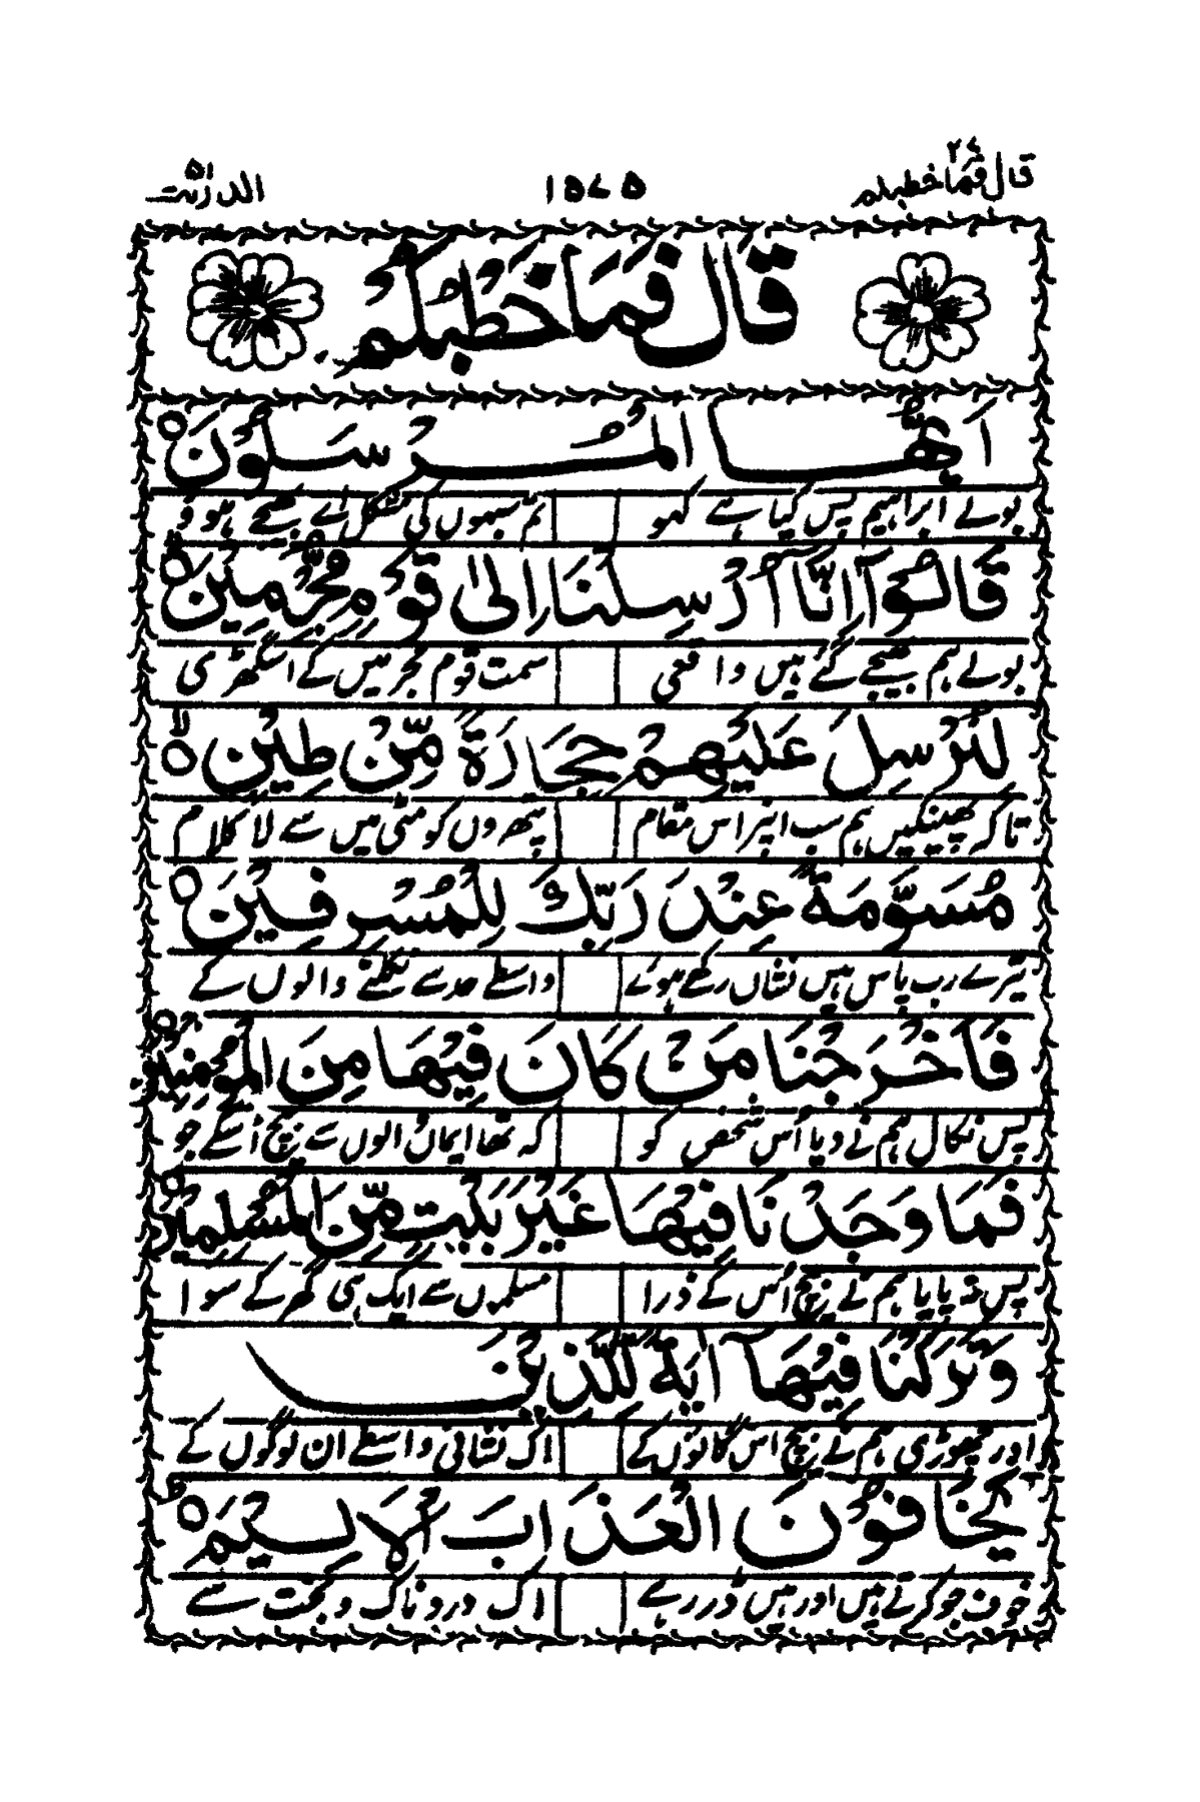 قال فما خطبکم ۲۷ ۱۵۷۵ الذٰریٰت ۵۱
قَالَ فَمَا خَطْبُكُمْ
اَيُّهَا الْمُرْسَلُوْنَ ○
بولے ابراہیم پس کیا ہے کہو تم سبھوں کی مشکل اے بھیجے ہوو
قَالُوْٓا اِنَّآ اُرْسِلْنَا اِلٰى قَوْمٍ مُّجْرِمِيْنَ ○ لا
بولے ہم بھیجے گئے ہیں واقعی سمت قوم مجرمیں کے اس گھڑی
لِنُرْسِلَ عَلَيْهِمْ حِجَارَةً مِّنْ طِيْنٍ ○ لا
تاکہ پھینکیں ہم سب اپنر اس مقام پتھروں کو مٹی میں سے لا کلام
مُّسَوَّمَةً عِنْدَ رَبِّكَ لِلْمُسْرِفِيْنَ ○
تیرے رب پاس ہیں نشاں رکھے ہوئے واسطے حد سے نکلنے والوں کے
فَاَخْرَجْنَا مَنْ كَانَ فِيْهَا مِنَ الْمُؤْمِنِيْنَ ○
پس نکال ہم نے دیا اُس شخص کو کہ تھا ایمان والوں سے بیچ اُسکے جو
فَمَا وَجَدْنَا فِيْهَا غَيْرَ بَيْتٍ مِّنَ الْمُسْلِمِيْنَ ○
پس نہ پایا ہم نے بیچ اُس کے ذرا مسلموں سے ایک ہی گھر کے سوا
وَتَرَكْنَا فِيْهَآ اٰيَةً لِّلَّذِيْنَ
اور چھوڑی ہم نے بیچ اس گانوں کے اک نشانی واسطے ان لوگوں کے
يَخَافُوْنَ الْعَذَابَ الْاَلِيْمَ ○ ط
خوف جو کرتے ہیں اور ہیں ڈر رہے اک درد ناک و سخت سے